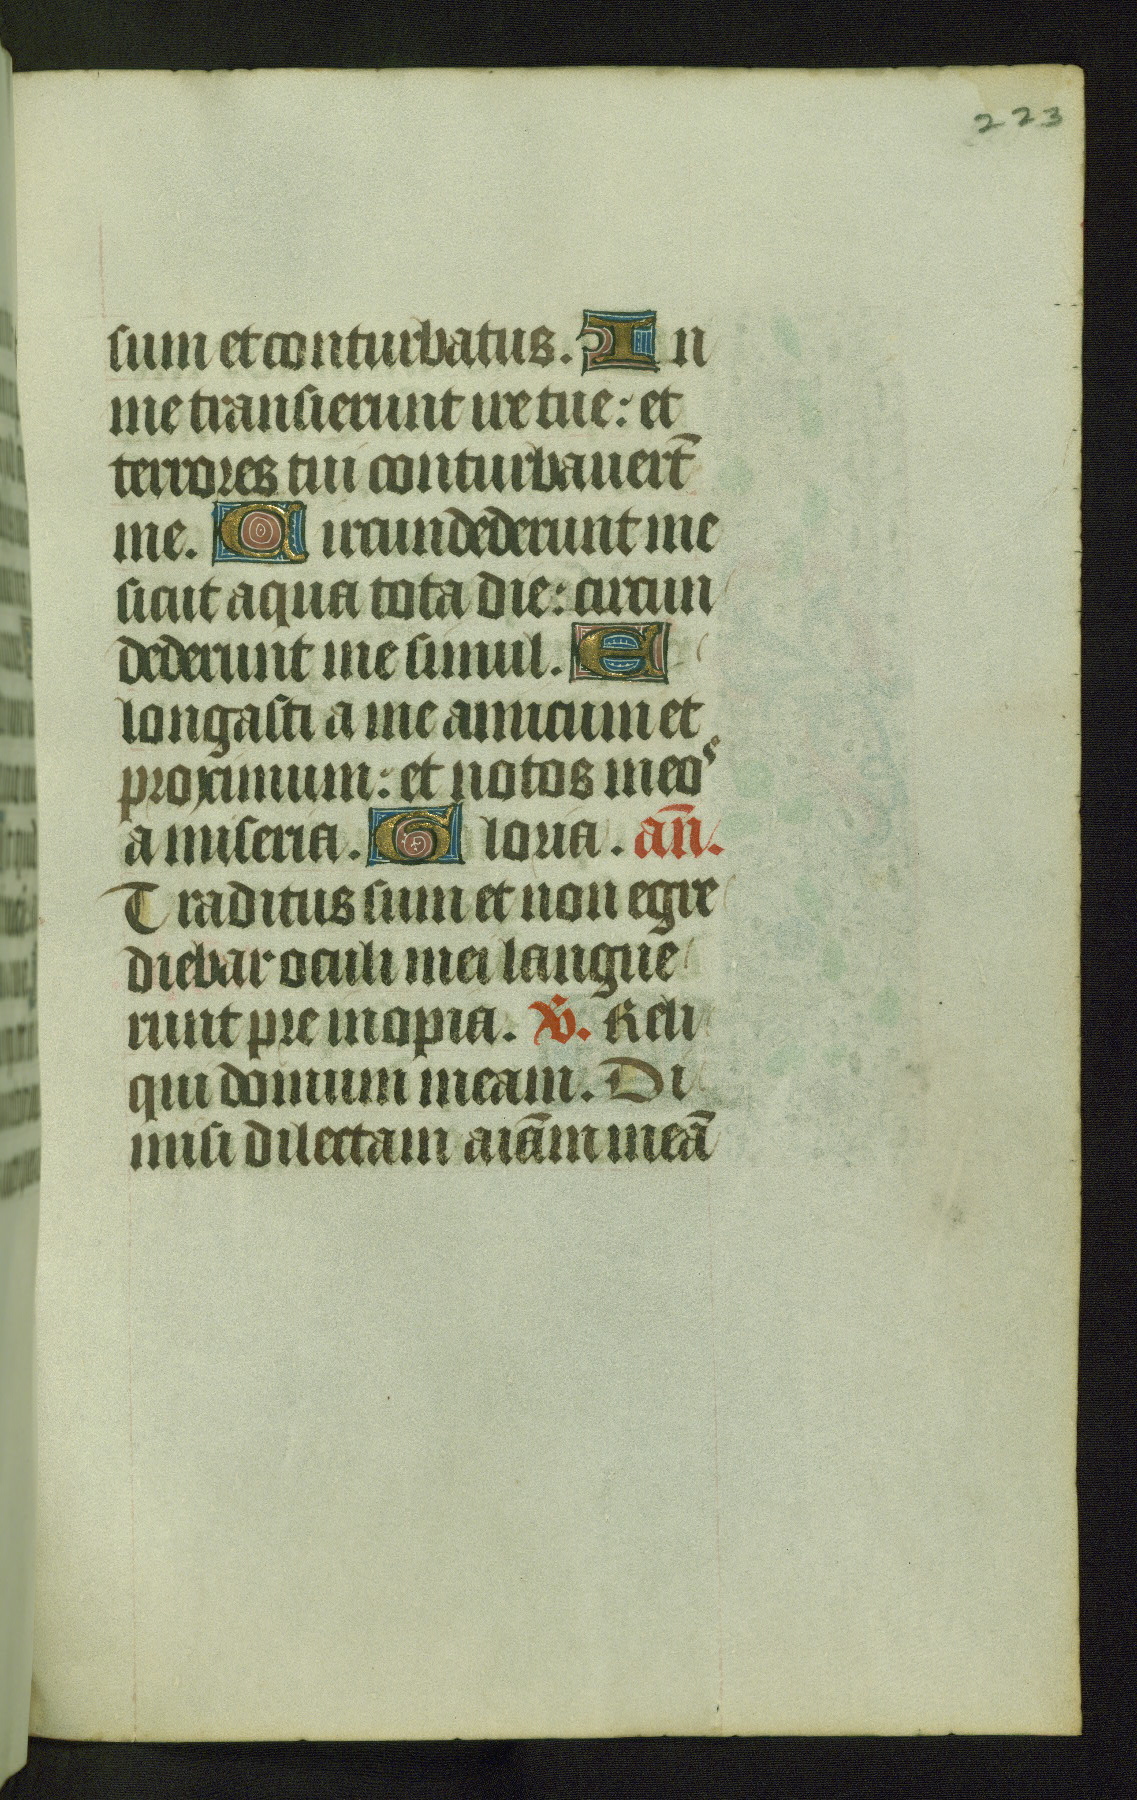 223
sum et conturbatus. In
me transierunt ire tue: et
terrores tui conturbauert̄
me. Circundederunt me
sicut aqua tota die: circun
dederunt me simul. E
longasti a me amicum et
proximum: et notos meoˢ
a miseria. Gloria. an̄.
Traditus sum et non egre
diebar oculi mei langue
runt pre inopia. ꟟. Reli
qui domum meam. Di
misi dilectam aiām meā